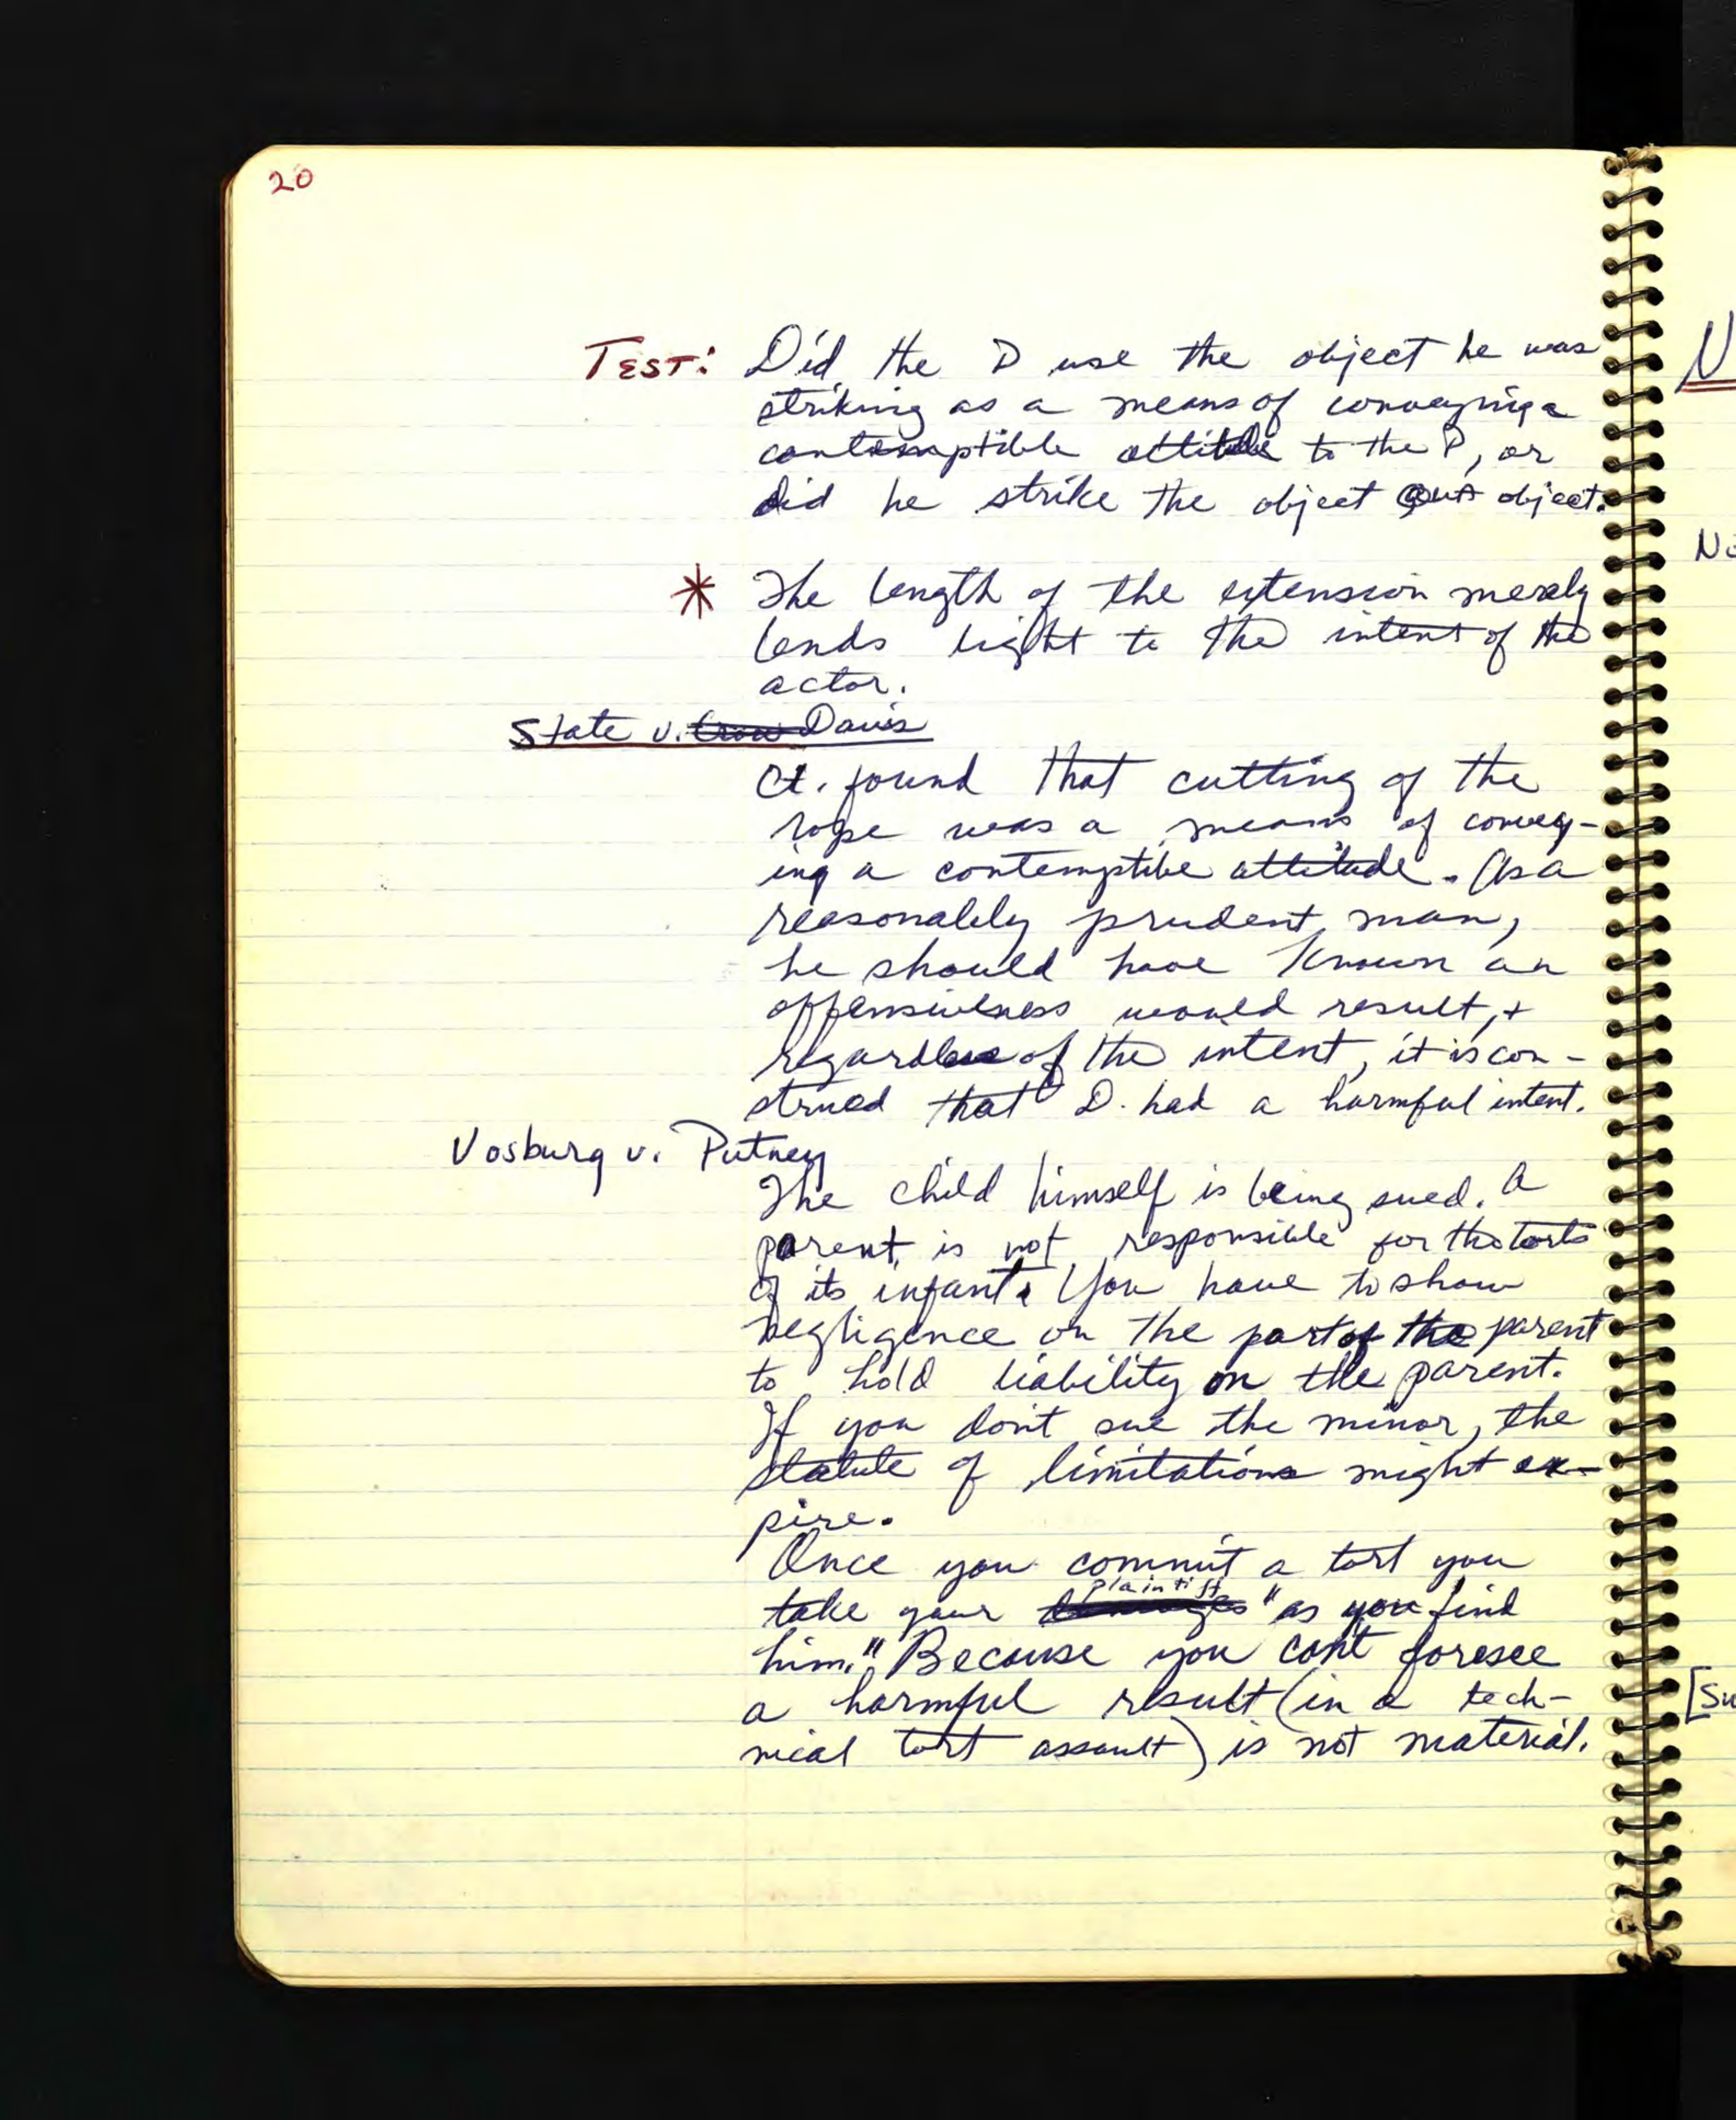 20
TEST: Did the D use the object he was
striking as a means of conveying a
contemptible attitude to the P, or
did he strike the object QUA object.
* The length of the extension merely
lends light to the intent of the
actor.
State v. Davis
Ct. found that cutting of the
rope was a means of convey-
ing a contemptibe attitude. As a
reasonablely prudent man,
he should have known an
offensiveness would result, +
regardless of the intent, it is con-
strued that D. had a harmful intent.
Vosburg v. Putney
The child himself is being sued. A
parent is not responsible for the torts
of its infant. You have to show
negligence on the part of the parent
to hold liability on the parent.
If you don't sue the minor, the
statute of limitations might ex-
pire.
Once you commit a tort you
take your plaintiff "as you find
him." Because you can't foresee
a harmful result (in a tech-
nical tort assault) is not material.
N
No
[Su